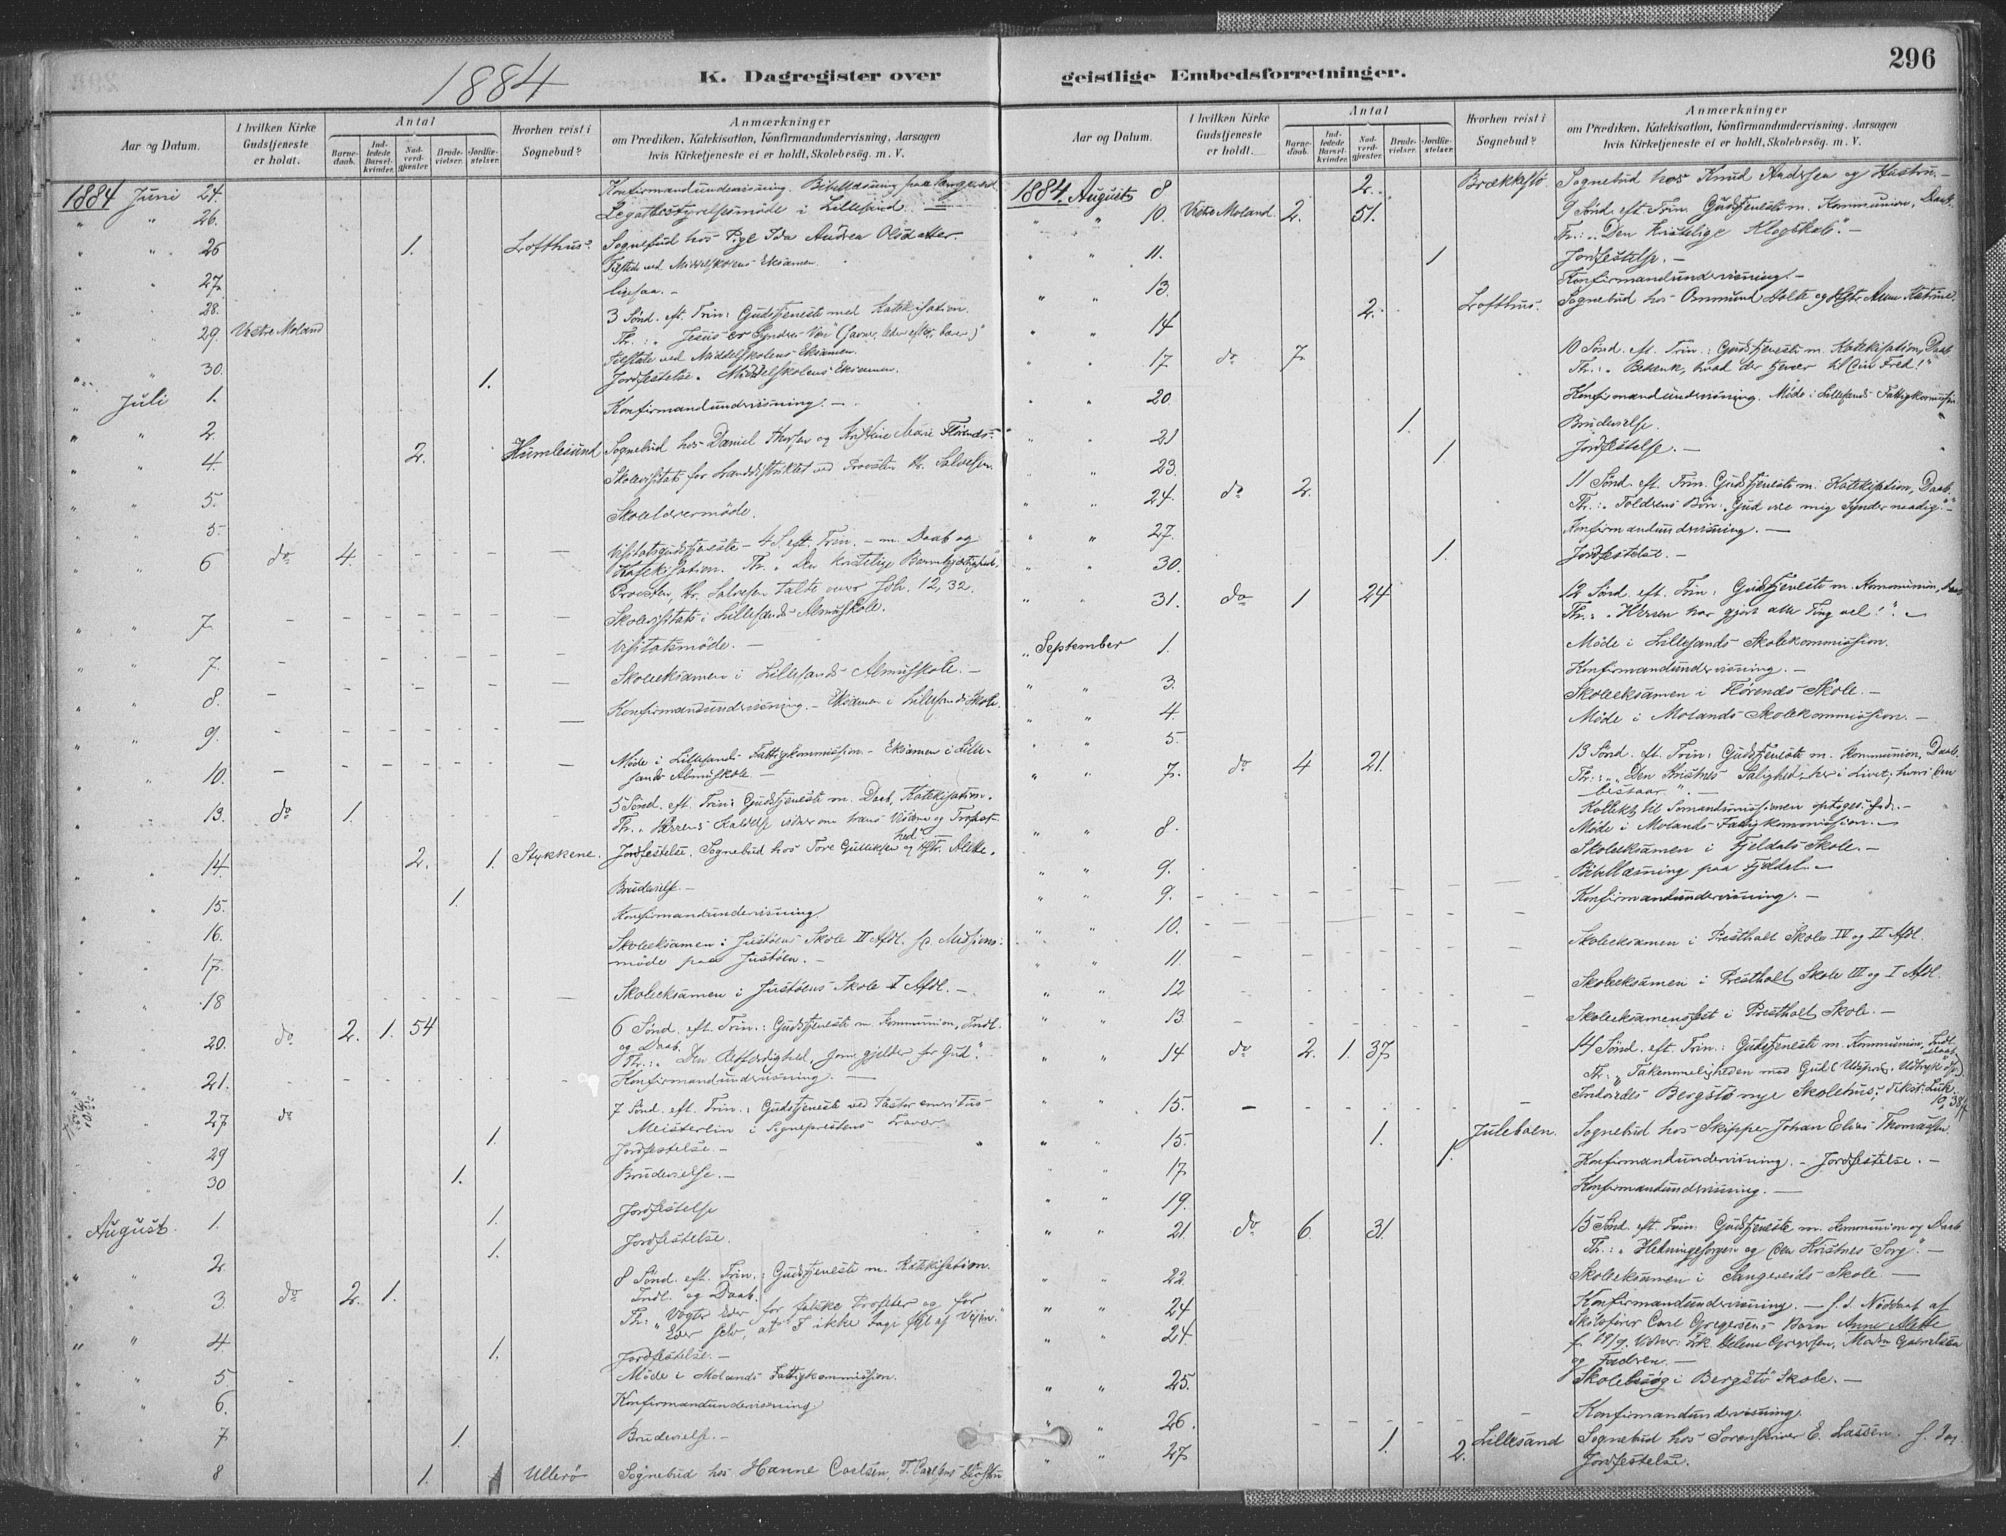 296
1884
K. Dagregister over geistlige Embedsforretninger.
Aar og Datum.
I hvilken Kirke Gudstjeneste er holdt.
Antal
Barnedaab.
Indledede Barselkvinder.
Nadverdgjester.
Brudevielser.
Jordfæstelser.
Hvorhen reist i Sognebud?
Anmærkninger
om Prædiken, Katekisation, Konfirmandundervisning, Aarsagen
hvis Kirketjeneste ei er holdt, Skolebesög. m. V.
1884 Juni 24. Konfirmandundervisning. Bibellæsning paa
" " 26. Legatbestyrelsesmöde i Lillesand.
" " 26 1. Lofthus? Sognebud hos Ida Andrea Olsdatter.
" " 27. Tilstede ved Middelskolens Eksamen.
" " 28. ligesaa. -
" " 29. Vestre Moland 3 Sönd. eft. Trin: Gudstjeneste med Katekisation.
Th.: "Jesus er Synderes Ven"
" " 30. Tilstede ved Middelskolens Eksamen.
1. Jordfestelse. Middelskolens Eksamen.
" Juli 1. Konfirmandundervisning. -
" " 2. 2. Humlesund Sognebud hos Daniel og Marie
" " 4. Skolevisitats for Landdistriktet ved Provsten hr. Salvesen.
" " 5. Skolelærermöde.
" " 5.
" " 6 do 4. Visitatsgudstjeneste - 4 S. eft. Trin. - m. Daab og
Katekisation. Th. "Den kristelige Barmhjertighed".
Provsten, hr. Salvesen talte over Joh. 12, 32.
" " 7. Skolevisitats i Lillesands Almuskole.
Visitatsmöde. -
" " 7. Skoleeksamen i Lillesands Almuskole. -
" " 8. Konfirmandundervisning. - Eksamen i Lillesands Skole.
" " 9.
" " 10. Möde i Lillesands Fattigkommission - Eksamen i Lillesands Almuskole -
" " 13. do 1. 5 Sönd. eft. Trin: Gudstjeneste m. Daab, Katekisation.
" " 14. 2. 1. Stykkene. Jordfestelse. Sognebud hos Tore Gulliksen og Hstr.
" " 15. 1. Brudevielse -
" " 16. Konfirmandundervisning
" " 17. Skoleeksamen i Justöens Skole II Afdl. Missionsmöde paa Justöen. -
" " 18 Skoleeksamen i Justöens Skole I Afdl. -
" " 20. do 2. 1. 54 6 Sönd. eft. Trin.: Gudstjeneste m. Kommunion, Indl.
og Daab.
Th.: "Den Retfærdighed, som gjelder for Gud".
" " 21. Konfirmandundervisning. -
" " 27 do 7 Sönd. eft. Trin.: Gudstjeneste ved Pastor emeritus
Meisterlin i Sogneprestens Fravær
" " 29 1. Jordfestelse. -
" " 30 1. Brudevielse. -
August. 1. 1. Jordfestelse
" " 2 1. Jordfestelse.
" " 3. do 2. 1. 8 Sönd. eft. Trin.: Gudstjeneste m. Katekisation.
Indl. og Daab.
Th.: "Vogter Eder for falske Profeter og for
Eder selv, at I ikke
" " 4 1. Jordfestelse. -
" " 5 Möde i Molands Fattigkommission.
" " 6. Konfirmandundervisning
" " 7 1. Brudevielse. -
" " 8 1. Ulleró Sognebud hos Hanne Carlsen,
Aar og Datum.
I hvilken Kirke Gudstjeneste er holdt.
Antal
Barnedaab.
Indledede Barselkvinder.
Nadverdgjester.
Brudevielser.
Jordfæstelser.
Hvorhen reist i Sognebud?
Anmærkninger
om Prædiken, Katekisation, Konfirmandundervisning, Aarsagen
hvis Kirketjeneste ei er holdt, Skolebesög. m. V.
1884 Augusts 8 2. Brækkestö Sognebud hos Knud Andersen og Hustru. -
" " 10. Vestre Moland 2. 51. 9 Sönd. eft. Trin. Gudstjeneste m. Kommunion, Daab.
Th.: "Den kristelige Klogskab". -
" " 11. 1 Jordfestelse. -
" " 13. Konfirmandundervisning. -
" " 14 2. Lofthus. Sognebud hos Osmund Holte og Hstr. Anne Katrine.
" " 17 do 7. 10 Sönd. eft. Trin.: Gudstjeneste m. Katekisation, Daab
Th.: "Betænk, hvad der tjener til Din Fred!"
" " 20. Konfirmandundervisning. Möde i Lillesands Fattigkommission
" " 21 1. Brudevielse.
" " 23. 1 Jordfestelse. -
" " 24. do 2. 11 Sönd. eft. Trin. Gudstjeneste m. Katekisation, Daab.
Th.: "Tolderens Bön: Gud vær mig Synder naadig". -
" " 27. Konfirmandundervisning. -
" " 30. 1. Jordfestelse. -
" " 31. do 1 24 12 Sönd. eft. Trin: Gudstjeneste m. Kommunion, Daab
Th.: "Herren har gjort alle Ting vel!". -
" September 1. Möde i Lillesands Skolekommission.
" " 3. Konfirmandundervisning. -
" " 4. Skoleeksamen i Flörends Skole. -
" " 5. Möde i Molands Skolekommission. -
" " 7. do 4 21. 13 Sönd. eft. Trin: Gudstjeneste m. Kommunion, Daab.
Th.: "Den Kristnes Salighed her i Livet; hvori den
bestaar". -
Kollekt til Sömandsmissionen optoges. -
" " 8. Möde i Molands Fattigkommission. -
" " 9. Skoleeksamen i Fjeldals Skole. -
Bibellæsning paa Fjeldal. -
" " 9. Konfirmandundervisning. -
" " 10.
" " 11 Skoleeksamen i Prestholt Skole IV og II Afdl.
" " 12 Skoleeksamen i Prestholt Skole III og I Afdl.
" " 13. Skoleeksamensfest i Prestholt Skole. -
" " 14 do 2. 1. 37 14 Sönd. eft. Trin.: Gudstjeneste m. Kommunion, Indl. Daab
Th.: "Takemmeligheden mod Gud
" " 15. Indviedes Bergstö nye Skolehus; Tekst: Luk. 10, 38
" " 15. 1. Juleboen. Sognebud hos Skipper Johan Elias Thomassen
" " 17 1. Konfirmandundervisning. - Jordfestelse. -
" " 19. Konfirmandundervisning. -
" " 21. do 6. 31. 15 Sönd. eft. Trin: Gudstjeneste m. Kommunion og Daab
Th.: "Hedningesorgen og den Kristnes Sorg". -
" " 22. Skoleeksamen i Sangereids Skole -
" " 24 Konfirmandundervisning. - f. d. Nöddaab af
" " 24. Carl Gregersens Barn Anne Mette
f. Vidner: Frk Helene Gregersen,
og Faderen. -
" " 25. Skolebesög i Bergstö Skole. -
" " 26. Konfirmandundervisning
" " 27 1. 2. Lillesand Sognebud hos Sorenskriver E. Lassen.
Jordfestelse.